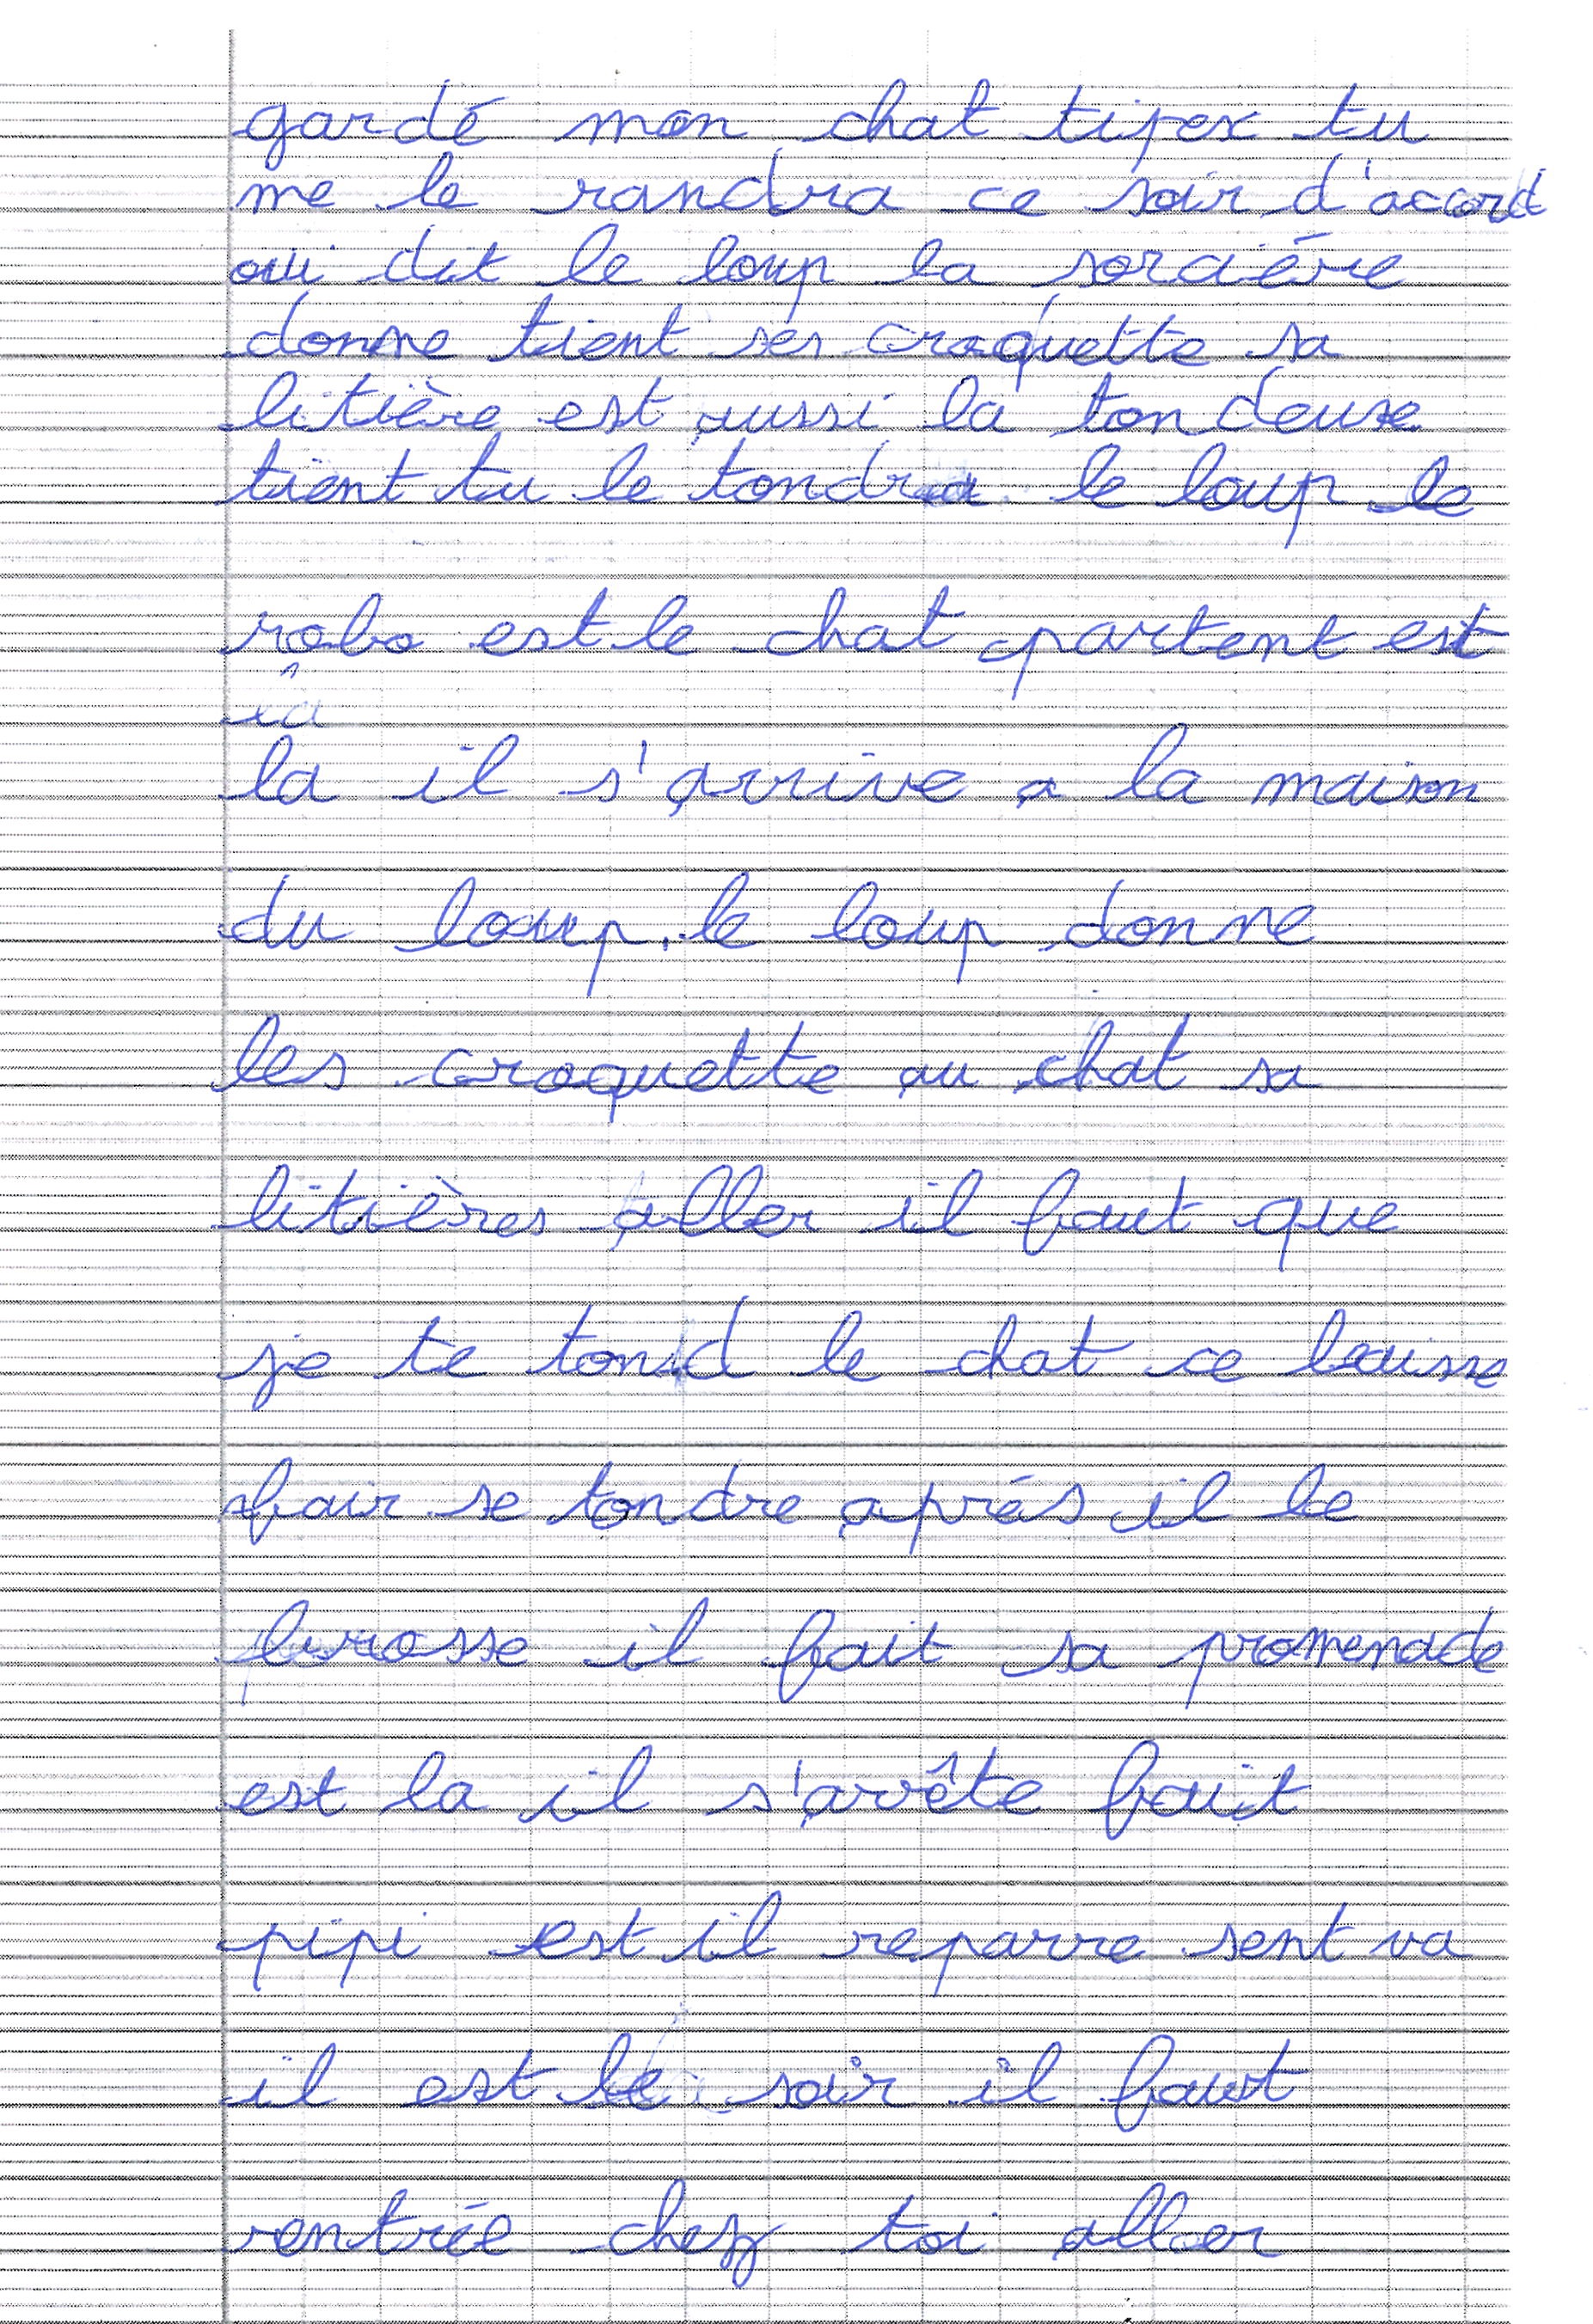 gardé mon chat tipex tu
me le randra ce soir d'acord
oui dit le loup la sorcière
donne tient ses croquette sa
litière est aussi la ton deuse
tient tu le tondra le loup le
robo est le chat partent est
la il s'arrive a la maison
du loup. le loup donne
les croquette au chat sa
litières aller il faut que
je te tond le chat ce laisse
fair se tondre après il le
brosse il fait sa promenade
est la il s'arrête fait
pipi est il reparre sent va
il est le soir il faut
rentrée chez toi aller